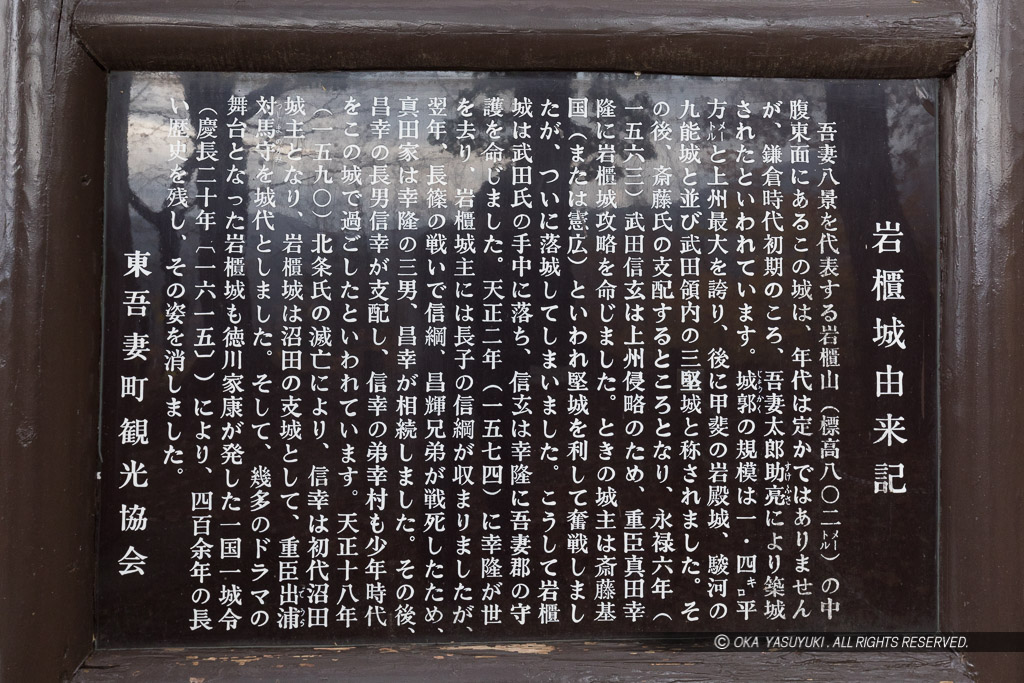 岩櫃城由来記
吾妻八景を代表する岩櫃山（標高八〇二メートル）の中
腹東面にあるこの城は、年代は定かではありません
が、鎌倉時代初期のころ、吾妻太郎助亮すけふさにより築城
されたといわれています。城郭じょうかくの規模は一・四キロ平
方メートルと上州最大を誇り、後に甲斐の岩殿城、駿河の
九能城と並び武田領内の三堅城と称されました。そ
の後、斎藤氏の支配するところとなり、永禄六年（
一五六三）武田信玄は上州侵略のため、重臣真田幸
隆に岩櫃城攻略を命じました。ときの城主は斎藤基
国（または憲広）といわれ堅城を利して奮戦しまし
たが、ついに落城してしまいました。こうして岩櫃
城は武田氏の手中に落ち、信玄は幸隆に吾妻郡の守
護を命じました。天正二年（一五七四）に幸隆が世
を去り、岩櫃城主には長子の信綱が収まりましたが、
翌年、長篠の戦いで信綱、昌輝兄弟が戦死したため、
真田家は幸隆の三男、昌幸が相続しました。その後、
昌幸の長男信幸が支配し、信幸の弟幸村も少年時代
をこの城で過ごしたといわれています。天正十八年
（一五九〇）北条氏の滅亡により、信幸は初代沼田
城主となり、岩櫃城は沼田の支城として、重臣出浦でうら
対馬守を城代としました。そして、幾多のドラマの
舞台となった岩櫃城も徳川家康が発した一国一城令
（慶長二十年〔一六一五〕）により、四百余年の長
い歴史を残し、その姿を消しました。
東吾妻町観光協会
© OKA YASUYUKI. ALL RIGHTS RESERVED.